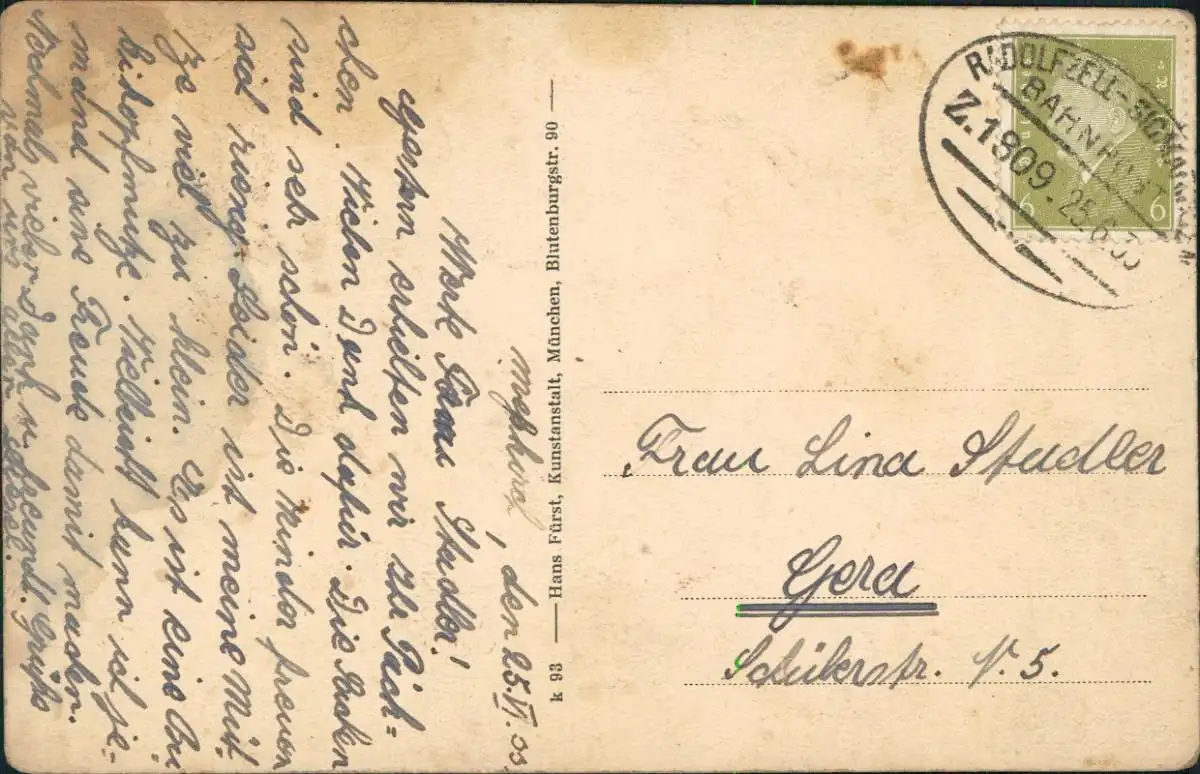 Meßkirch, den 25.VI.33.
Werte Frau Stadler!
Gestern erhielten wir Ihr Päck=
chen. Vielen Dank dafür. Die Sachen
sind seh schön. Die Kinder freuen
sich riesig. Leider ist meine Müt=
ze viel zu klein. Es ist eine
. Vielleicht kann ich je=
mand eine Freude damit machen.
Nochmals vielen Dank u. freundl. Grüße
von uns allen
k 93 — Hans Fürst, Kunstanstalt, München, Blutenburgstr. 90 —
RADOLFZELL-SIGMARINGEN
BAHNPOST
Z.1809 25.6.33
6 6
Frau Lina Stadler
Gera
Schülerstr. N. 5.